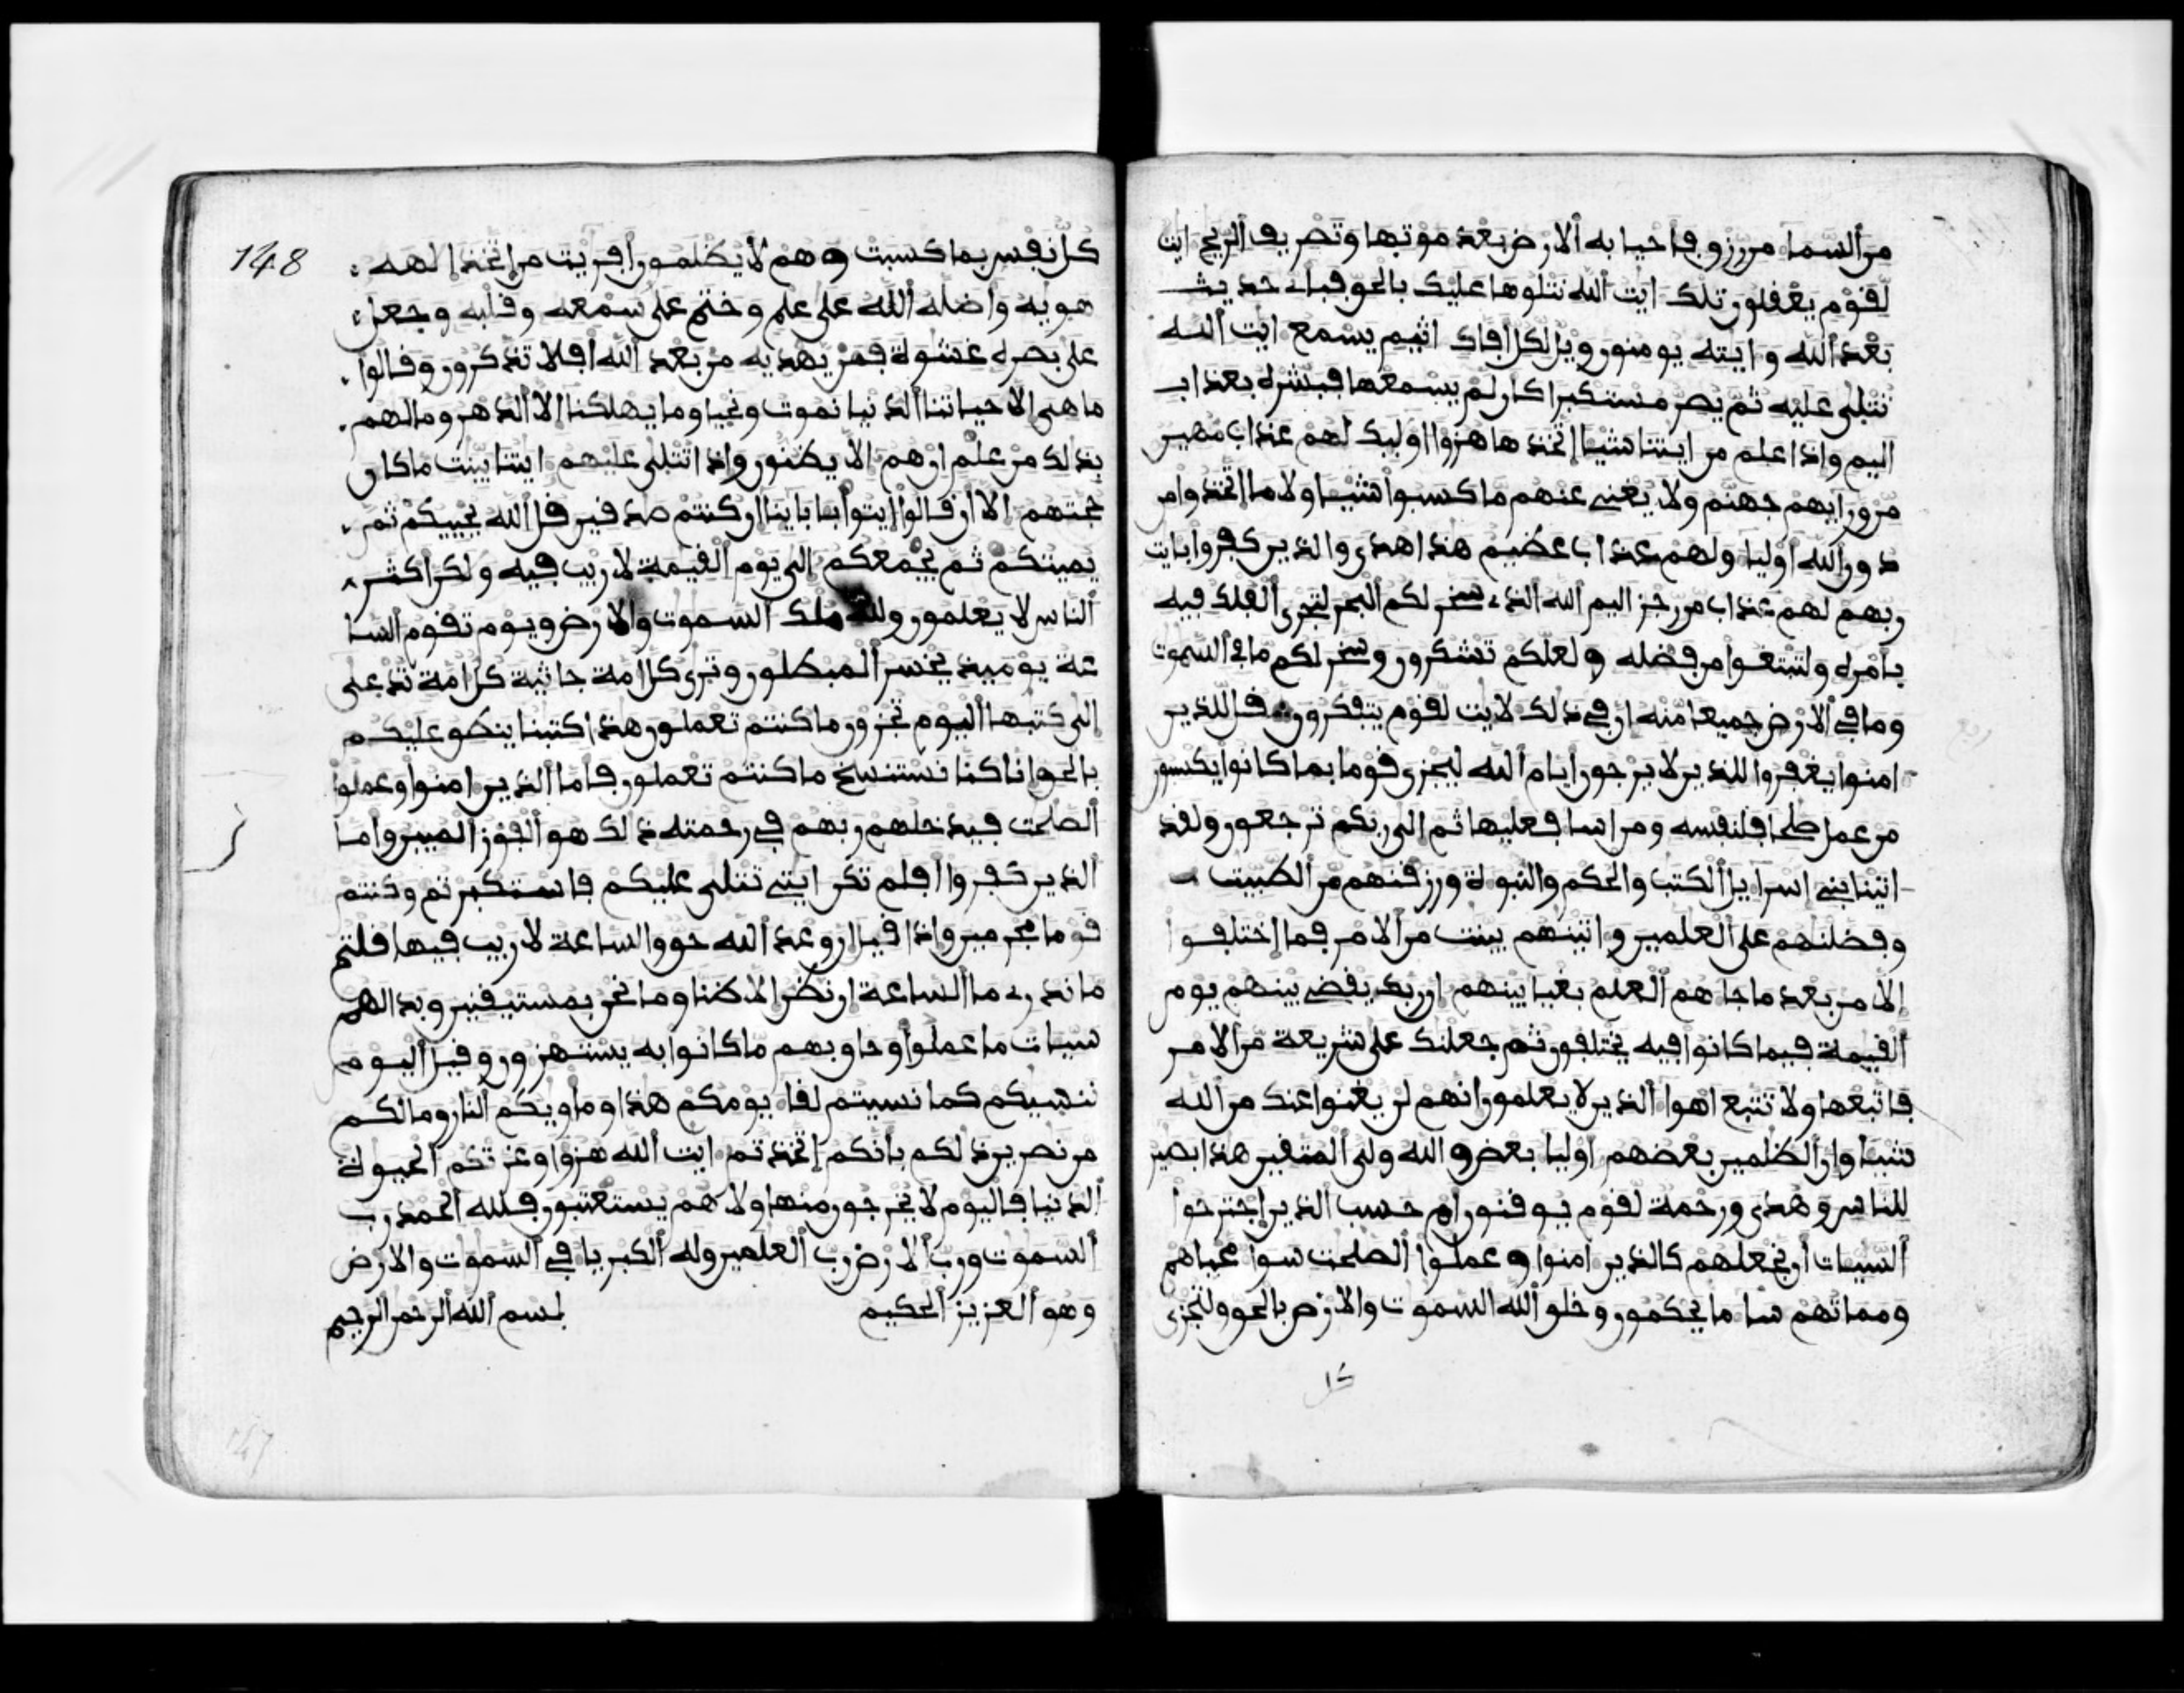 من السما من رزق فاحيا به الارض بعد موتها وتصريف الريح ايت
لقوم يعقلون تلك ايت الله نتلوها عليك بالحق فباى حديث
بعد الله وايته يومنون ويل لكل افاك اثيم يسمع ايت الله
تتلى عليه ثم يصر مستكبرا كان لم يسمعها فبشره بعذاب
اليم واذا علم من ايتنا شيا اتخذها هزوا اوليك لهم عذاب مهين
من ورايهم جهنم ولا يغنى عنهم ما كسبوا شيا ولا ما اتخذوا من
دون الله اوليا ولهم عذاب عظيم هذا هدى والذين كفروا بايت
ربهم لهم عذاب من رجز اليم الله الذى سخر لكم البحر لتجرى الفلك فيه
بامره ولتبتغوا من فضله ولعلكم تشكرون وسخر لكم ما فى السموت
وما فى الارض جميعا منه ان فى ذلك لايت لقوم يتفكرون قل للذين
امنوا يغفروا للذين لا يرجون ايام الله ليجزى قوما بما كانوا يكسبون
من عمل صلحا فلنفسه ومن اسا فعليها ثم الى ربكم ترجعون ولقد
اتينا بنى اسرايل الكتب والحكم والنبوة ورزقنهم من الطيبت
وفضلنهم على العلمين واتينهم بينت من الامر فما اختلفوا
الا من بعد ما جاهم العلم بغيا بينهم ان ربك يقضى بينهم يوم
القيمة فيما كانوا فيه يختلفون ثم جعلنك على شريعة من الامر
فاتبعها ولا تتبع اهوا الذين لا يعلمون انهم لن يغنوا عنك من الله
شيا وان الظلمين بعضهم اوليا بعض والله ولى المتقين هذا بصير
للناس وهدى ورحمة لقوم يوقنون ام حسب الذين اجترحوا
السيات ان نجعلهم كالذين امنوا وعملوا الصلحت سوا محياهم
ومماتهم سا ما يحكمون وخلق الله السموت والارض بالحق ولتجزى
كل
ربع
148
كل نفس بما كسبت وهم لا يظلمون افريت من اتخذ الهه
هويه واضله الله على علم وختم على سمعه وقلبه وجعل
على بصره غشوة فمن يهديه من بعد الله افلا تذكرون وقالوا
ما هى الا حياتنا الدنيا نموت ونحيا وما يهلكنا الا الدهر وما لهم
بذلك من علم ان هم الا يظنون واذا تتلى عليهم ايتنا بينت ما كان
حجتهم الا ان قالوا ايتوا بابائنا ان كنتم صدقين قل الله يحييكم ثم
يميتكم ثم يجمعكم الى يوم القيمة لا ريب فيه ولكن اكثر
الناس لا يعلمون ولله ملك السموت والارض ويوم تقوم السا
عة يوميذ يخسر المبطلون وترى كل امة جاثية كل امة تدعى
الى كتبها اليوم تجزون ما كنتم تعملون هذا كتبنا ينطق عليكم
بالحق انا كنا نستنسخ ما كنتم تعملون فاما الذين امنوا وعملوا
الصلحت فيدخلهم ربهم فى رحمته ذلك هو الفوز المبين واما
الذين كفروا افلم تكن ايتى تتلى عليكم فاستكبرتم وكنتم
قوما مجرمين واذا قيل ان وعد الله حق والساعة لا ريب فيها قلتم
ما ندرى ما الساعة ان نظن الا ظنا وما نحن بمستيقنين وبدا لهم
سيات ما عملوا وحاق بهم ما كانوا به يستهزون وقيل اليوم
ننسيكم كما نسيتم لقا يومكم هذا وماويكم النار وما لكم
من نصرين ذلكم بانكم اتخذتم ايت الله هزوا وغرتكم الحيوة
الدنيا فاليوم لا يخرجون منها ولا هم يستعتبون فلله الحمد رب
السموت ورب الارض رب العلمين وله الكبريا فى السموت والارض
وهو العزيز الحكيم بسم الله الرحمن الرحيم
147